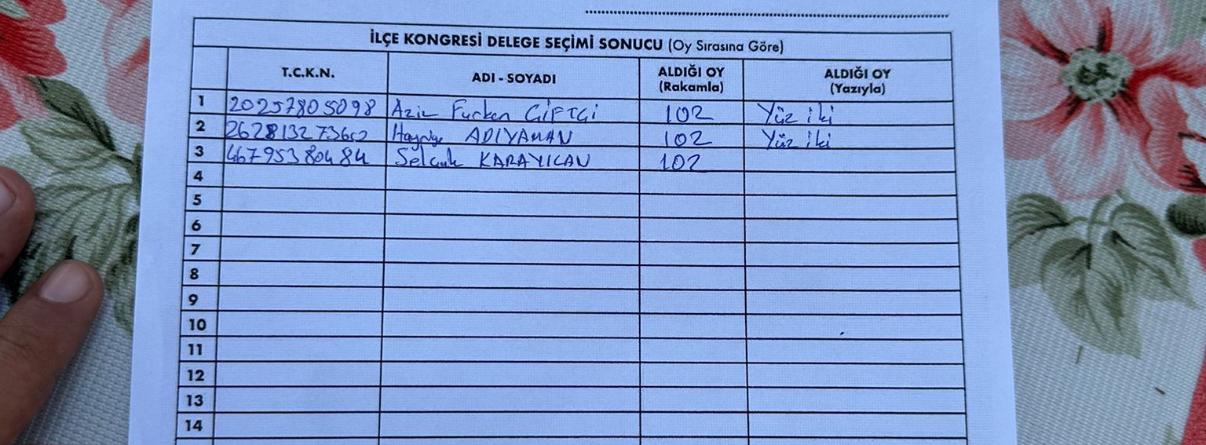 İLÇE KONGRESİ DELEGE SEÇİMİ SONUCU (Oy Sırasına Göre)
T.C.K.N. ADI - SOYADI ALDIĞI OY (Rakamla) ALDIĞI OY (Yazıyla)
1 20257805098 Aziz Furkan ÇİFTÇİ 102 Yüz iki
2 26281327 3652 ADIYAMAN 102 Yüz iki
3 46795380484 Selçuk KARAYILAN 102
4
5
6
7
8
9
10
11
12
13
14